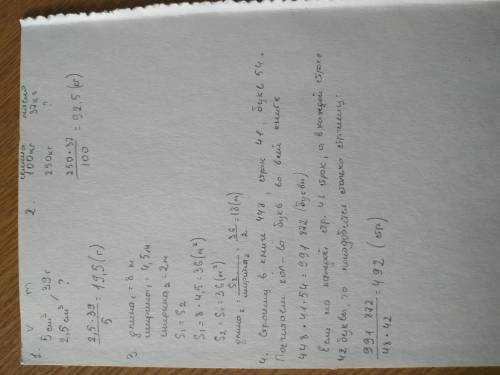 1. V m
5 cm³ / 39 г
2,5 cm³ ?
2,5 · 39 / 5 = 19,5 (г)
2 масло
100 кг 37 кг
250 кг ?
250 · 37 / 100 = 92,5 (кг)
3. длина₁ = 8 м
ширина₁ = 4,5 м
ширина₂ = 2 м
S₁ = S₂
S₁ = 8 · 4,5 = 36 (м²)
S₂ = S₁ = 36 (м²)
длина₂ = S₂ / ширина₂ = 36 / 2 = 18 (м)
4. Страниц в книге 448, строк 41, букв 54.
Посчитаем кол-во букв во всей книге
448 · 41 · 54 = 991 872 (буквы)
Если на каждой стр. 48 строк, а в каждой строке
42 буквы, то понадобится столько страниц:
991 872 / 48 · 42 = 492 (стр)